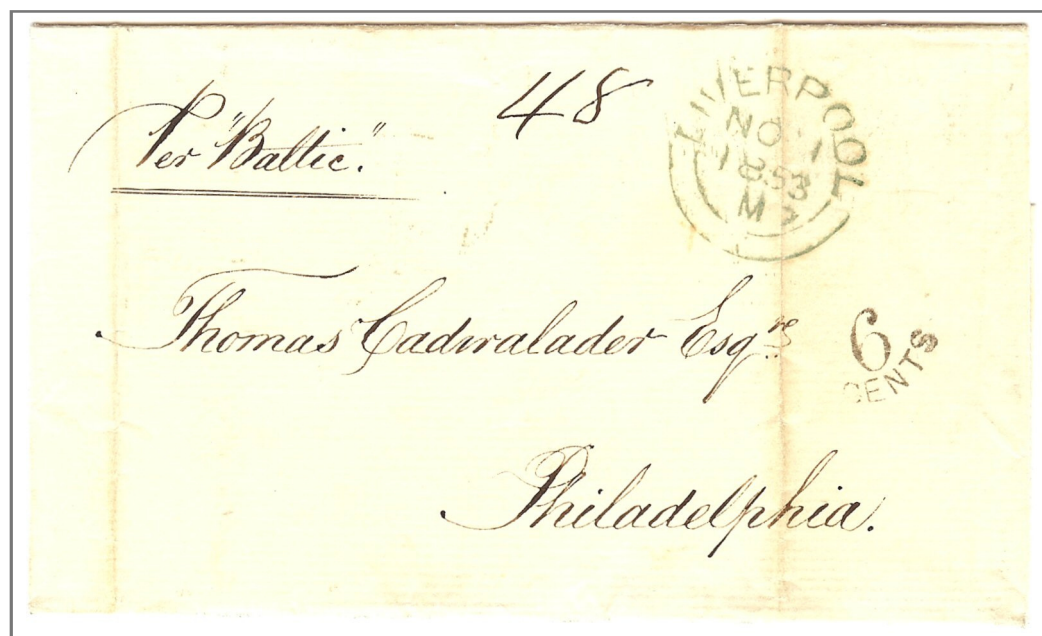 48
Per "Baltic."
LIVERPOOL
NO 1
1853
M
Thomas Cadwalader Esqre
6
CENTS
Philadelphia.